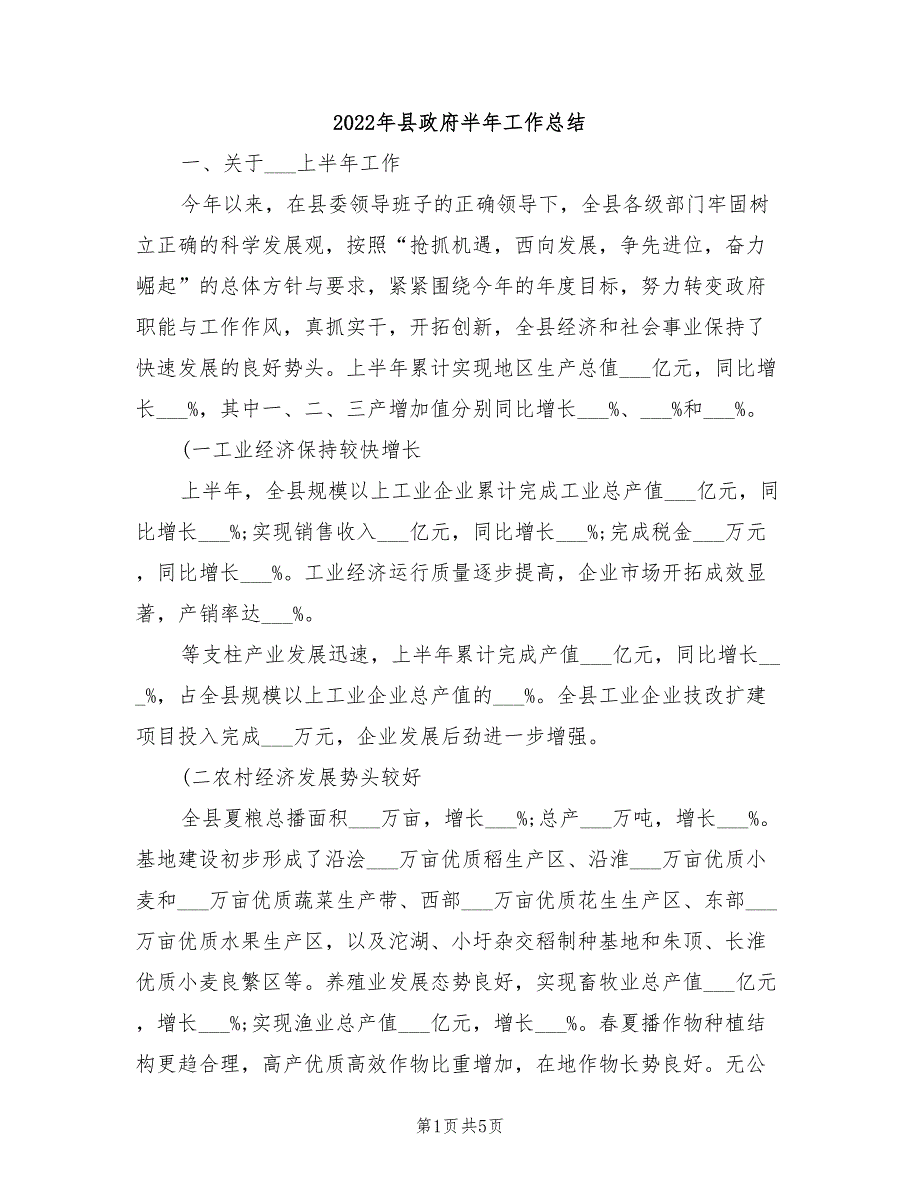 2022年县政府半年工作总结
一、关于___上半年工作
今年以来，在县委领导班子的正确领导下，全县各级部门牢固树
立正确的科学发展观，按照“抢抓机遇，西向发展，争先进位，奋力
崛起”的总体方针与要求，紧紧围绕今年的年度目标，努力转变政府
职能与工作作风，真抓实干，开拓创新，全县经济和社会事业保持了
快速发展的良好势头。上半年累计实现地区生产总值___亿元，同比增
长___%，其中一、二、三产增加值分别同比增长___%、___%和___%。
(一工业经济保持较快增长
上半年，全县规模以上工业企业累计完成工业总产值___亿元，同
比增长___%;实现销售收入___亿元，同比增长___%;完成税金___万元
，同比增长___%。工业经济运行质量逐步提高，企业市场开拓成效显
著，产销率达___%。
等支柱产业发展迅速，上半年累计完成产值___亿元，同比增长__
_%，占全县规模以上工业企业总产值的___%。全县工业企业技改扩建
项目投入完成___万元，企业发展后劲进一步增强。
(二农村经济发展势头较好
全县夏粮总播面积___万亩，增长___%;总产___万吨，增长___%。
基地建设初步形成了沿浍___万亩优质稻生产区、沿淮___万亩优质小
麦和___万亩优质蔬菜生产带、西部___万亩优质花生生产区、东部___
万亩优质水果生产区，以及沱湖、小圩杂交稻制种基地和朱顶、长淮
优质小麦良繁区等。养殖业发展态势良好，实现畜牧业总产值___亿元
，增长___%;实现渔业总产值___亿元，增长___%。春夏播作物种植结
构更趋合理，高产优质高效作物比重增加，在地作物长势良好。无公
第1页共5页